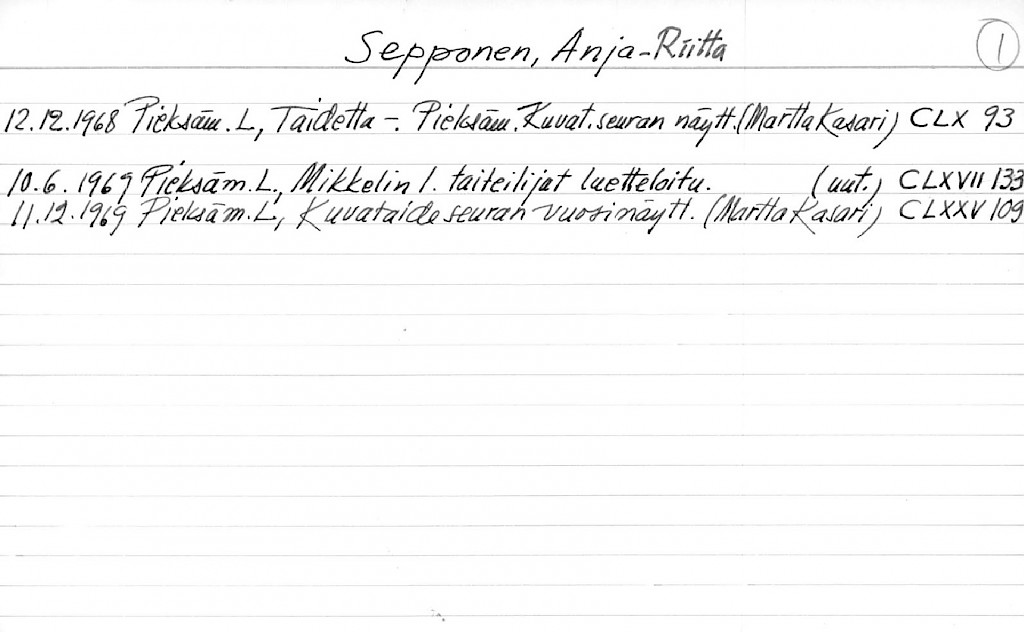 Sepponen, Anja-Riitta 1
12.12.1968 Pieksäm. L, Taidetta -. Pieksäm. Kuvat.seuran näytt. (Martta Kasari) CLX 93
10.6.1969 Pieksäm. L., Mikkelin l. taiteilijat luetteloitu. (uut.) CLXVII 133
11.12.1969 Pieksäm. L., Kuvataideseuran vuosinäytt. (Martta Kasari) CLXXV 109